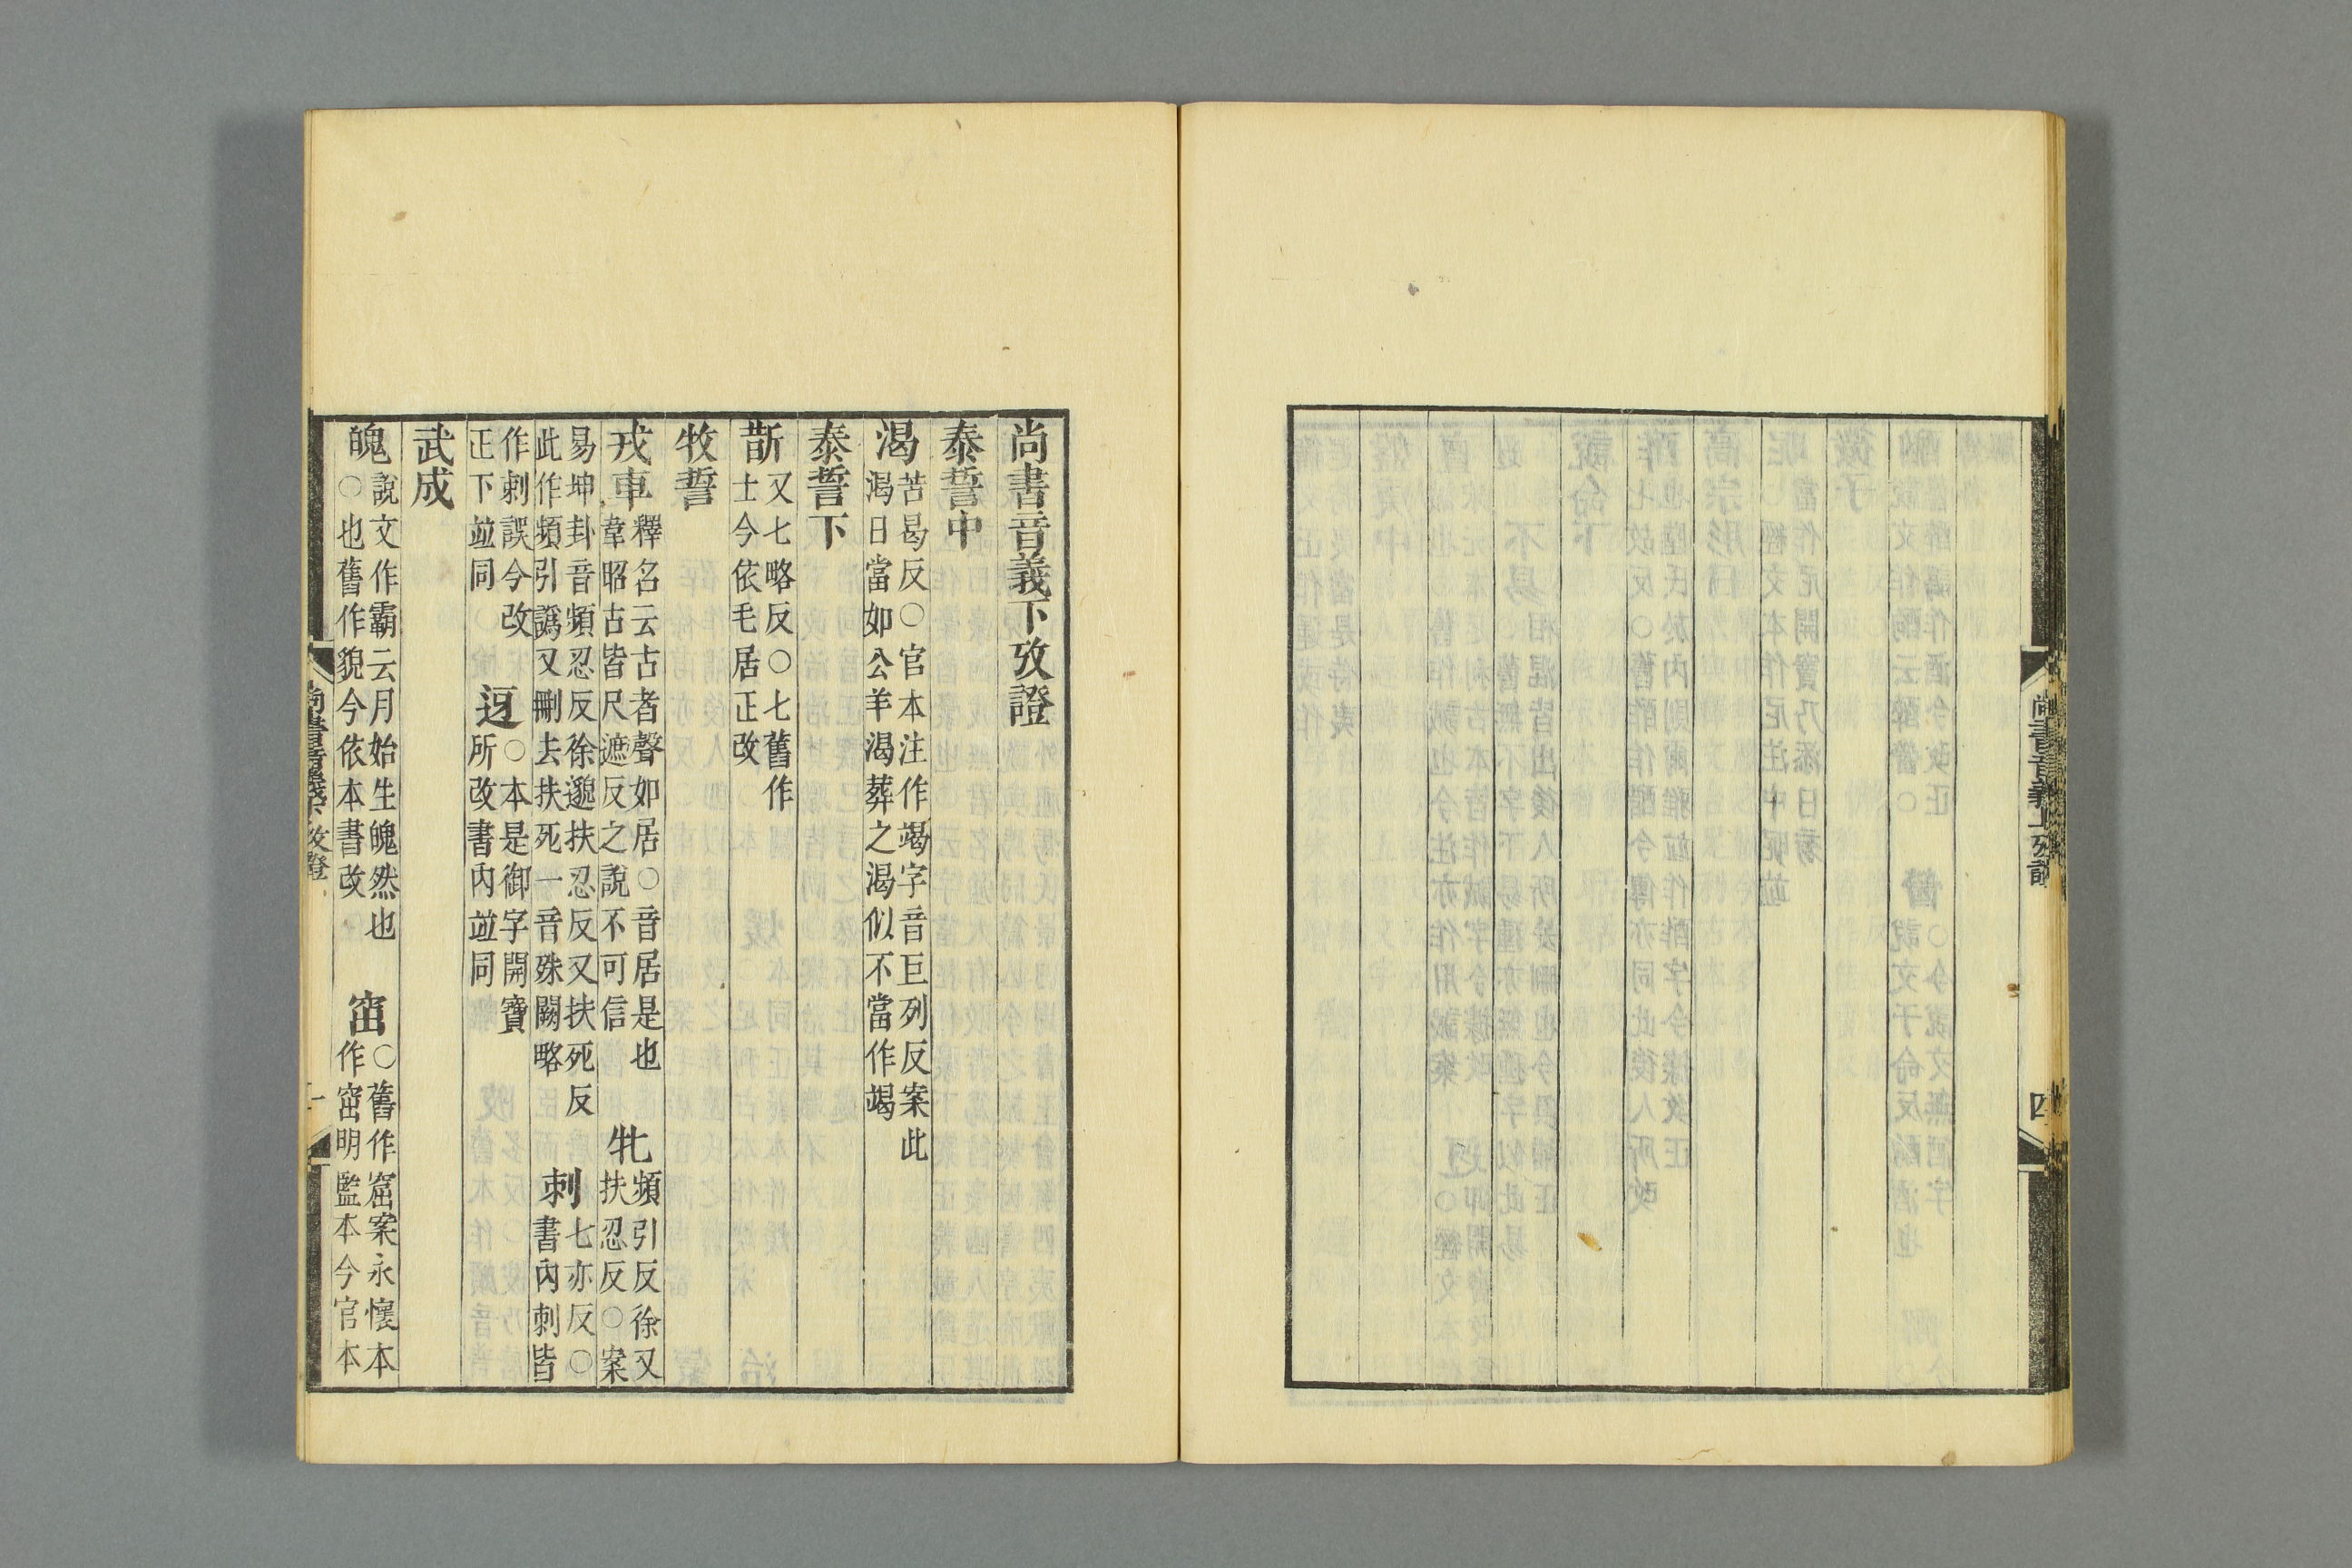 尚書音義上攷證
四
尚書音義下攷證
泰誓中
渴苦曷反○官本注作竭字音巨列反案此
渴日當如公羊渴葬之渴似不當作竭
泰誓下
斮又七略反○七舊作
士今依毛居正改
牧誓
戎車釋名云古者聲如居○音居是也
韋昭古皆尺遮反之說不可信
牝頻引反徐又
扶忍反○案
易坤卦音頻忍反徐邈扶忍反又扶死反
此作頻引譌又刪去扶死一音殊闕略
刺七亦反○
書內刺皆
作剌誤今改
正下竝同
迓○本是御字開寶
所改書內竝同
武成
魄說文作霸云月始生魄然也
○也舊作貌今依本書改
窋○舊作窟案永懷本
作窋明監本今官本
尚書音義下攷證
一